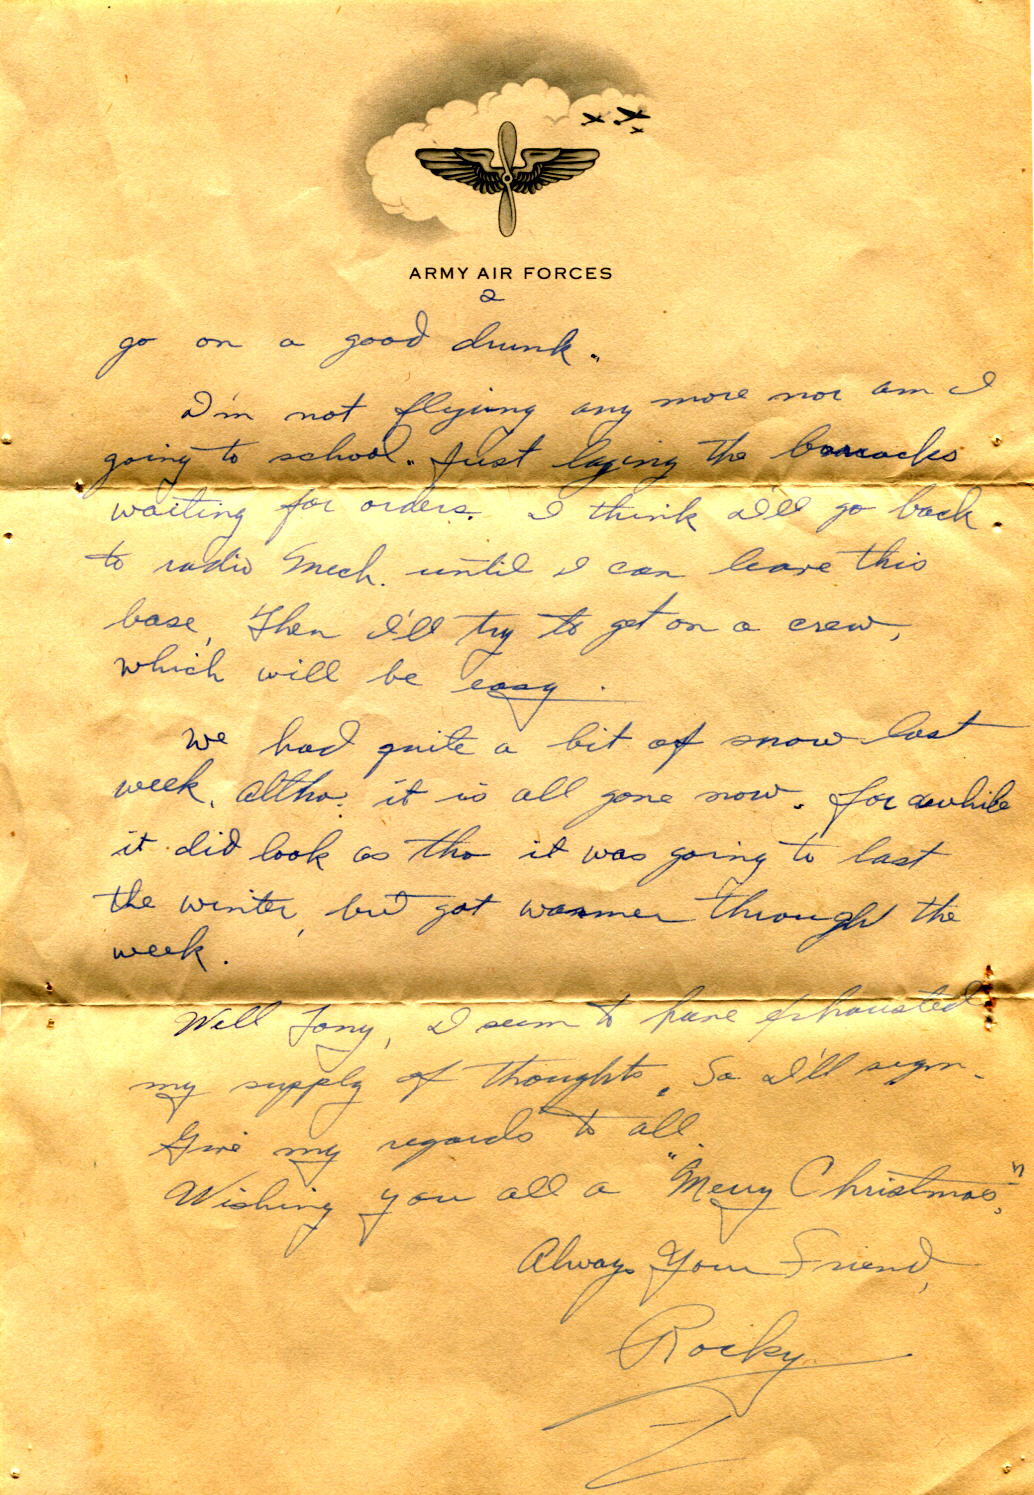 ARMY AIR FORCES
2
go on a good drunk.
I'm not flying any more nor am I
going to school. Just laying the barracks
waiting for orders. I think I'll go back
to radio Mech. until I can leave this
base, Then I'll try to get on a crew,
which will be easy.
We had quite a bit of snow last
week, altho. it is all gone now. For awhile
it did look as tho it was going to last
the winter, but got warmer through the
week.
Well Tony, I seem to have exhausted
my supply of thoughts, So I'll sign.
Give my regards to all.
Wishing you all a "Merry Christmas,"
Always Your Friend,
Rocky